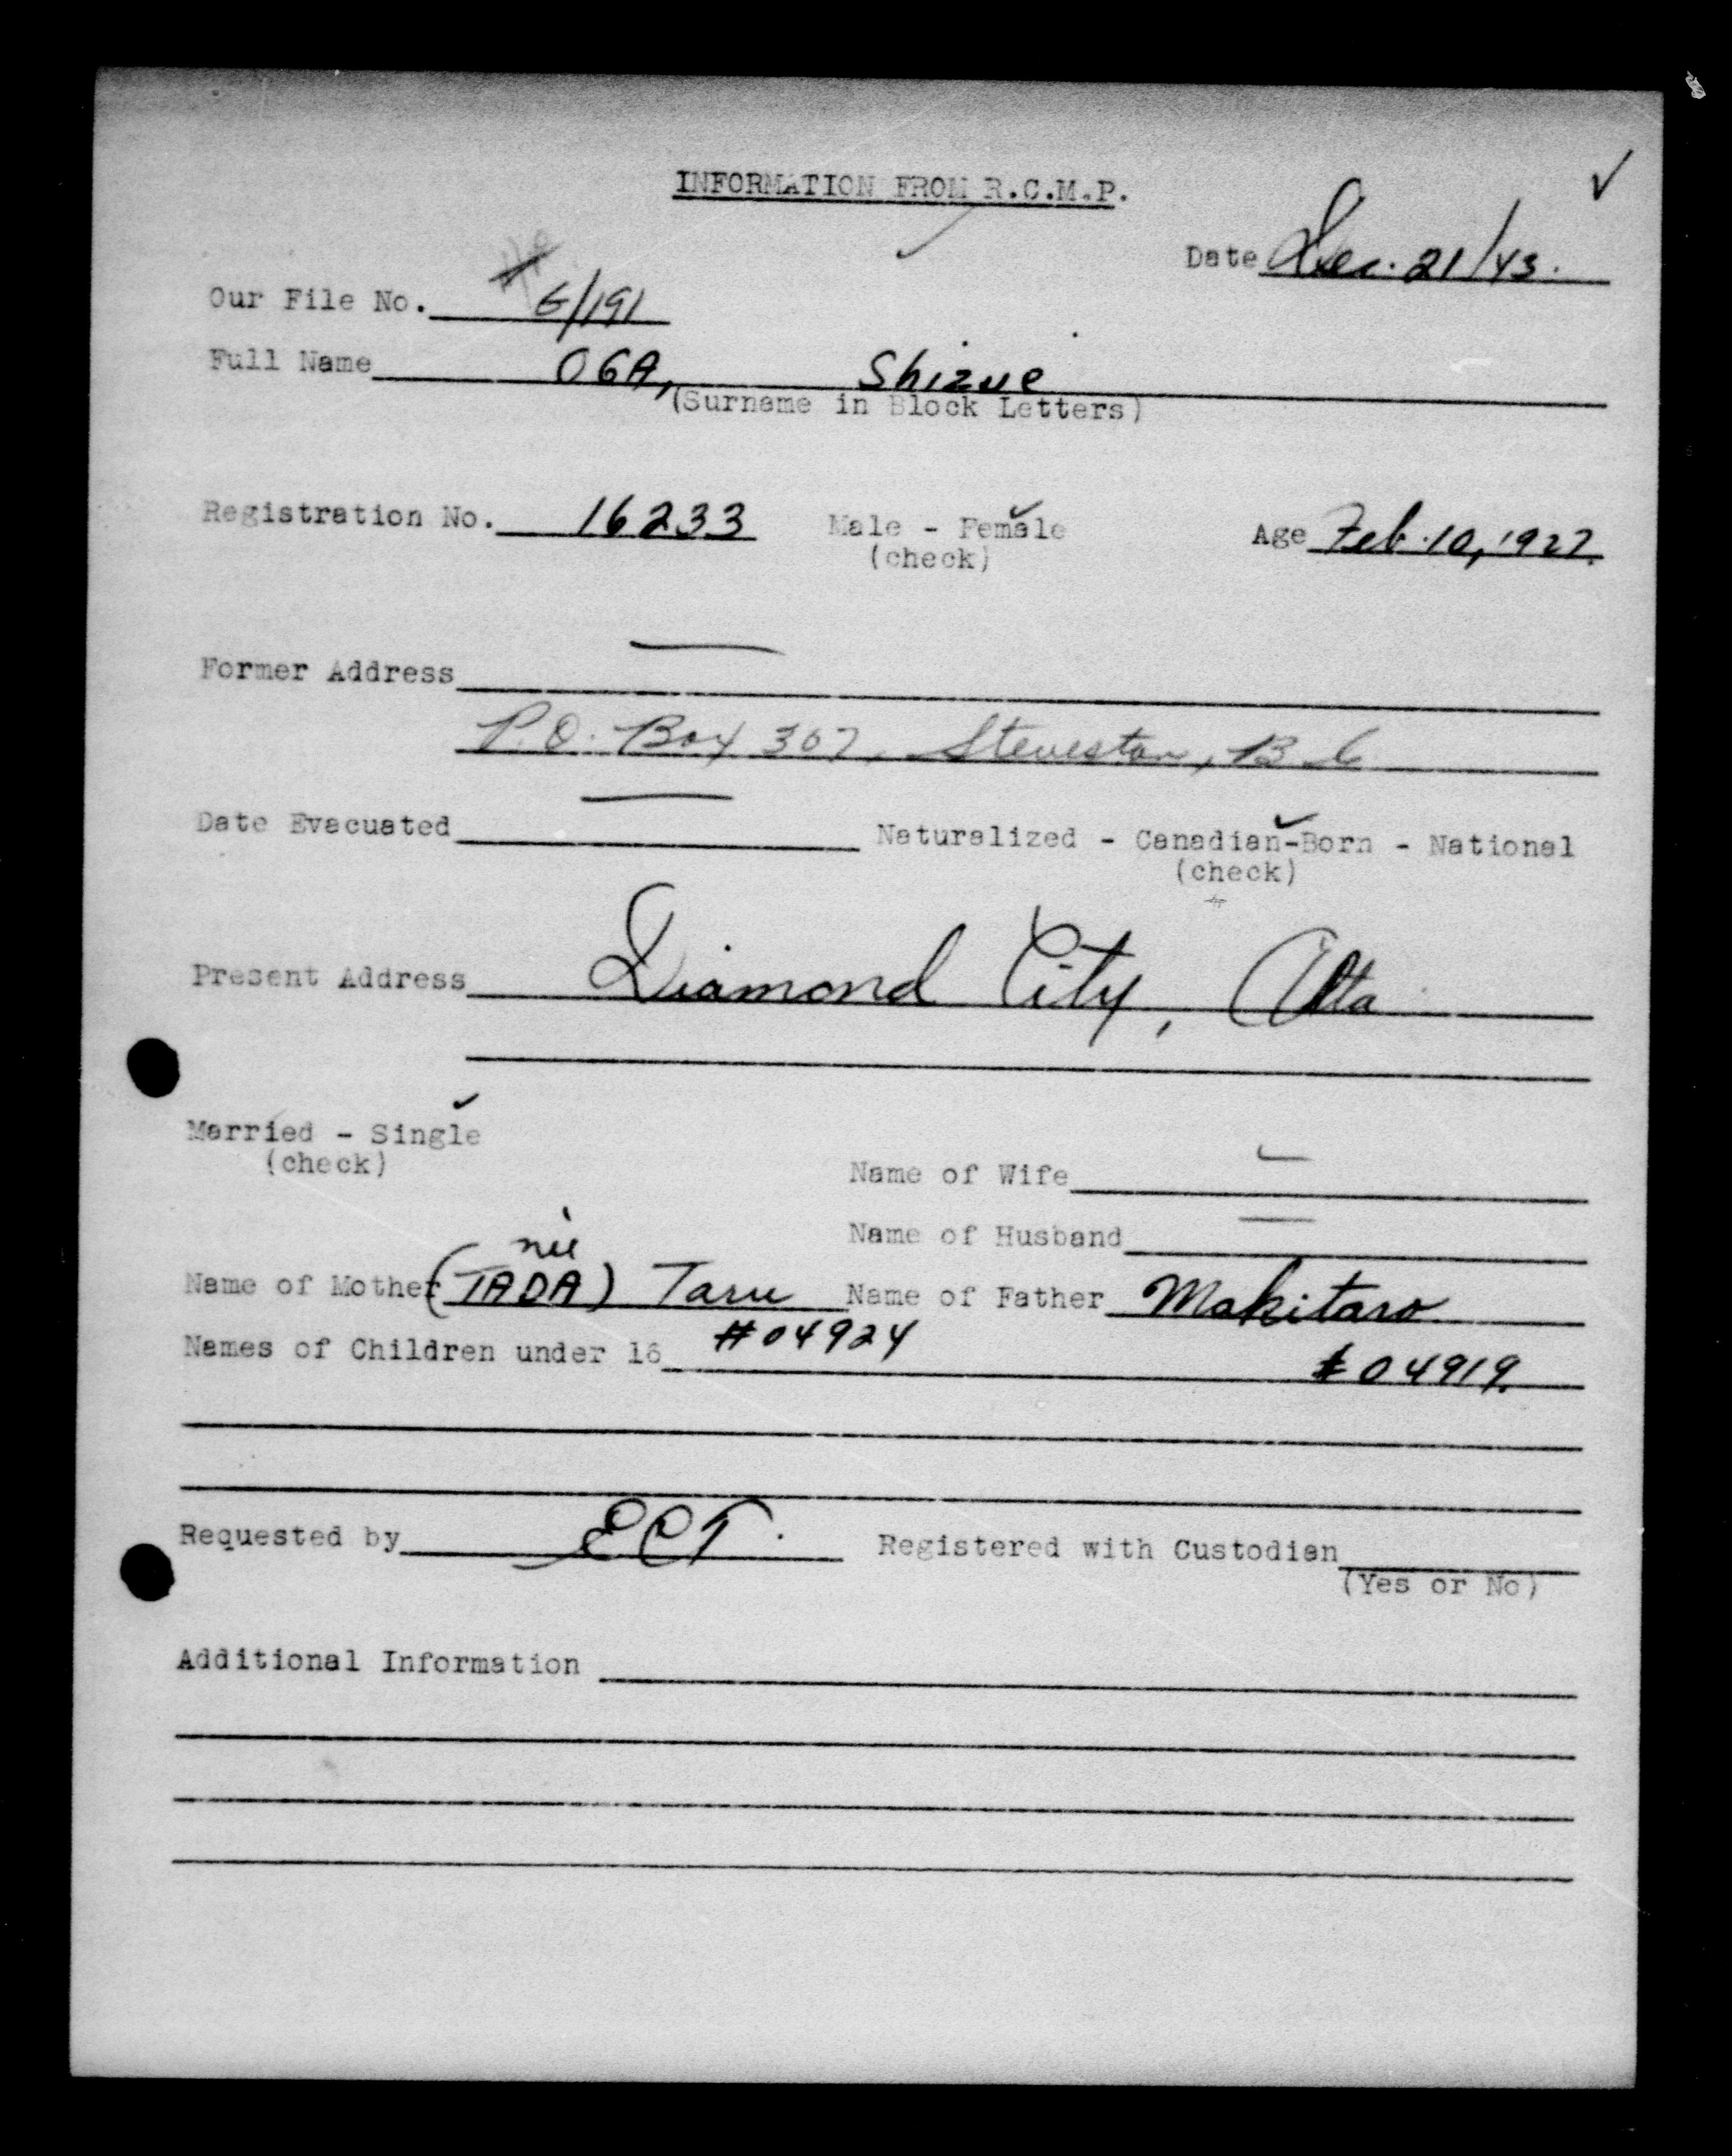 INFORMATION FROM R.C.M.P.
Date Dec. 21/43.
Our File No. 6/191
Full Name OGA, Shizue
(Surname in Block Letters)
Registration No. 16233 Male - Female Age Feb. 10, 1927.
(check)
Former Address
P.O. Box 307, Steveston, B C
Date Evacuated Naturalized - Canadian-Born - National
(check)
Present Address Diamond City, Alta
Married - Single
(check)
Name of Wife
Name of Husband
née
Name of Mother (TADA) Taru Name of Father Makitaro
Names of Children under 16 #04924 #04919.
Requested by ECT. Registered with Custodian
(Yes or No)
Additional Information